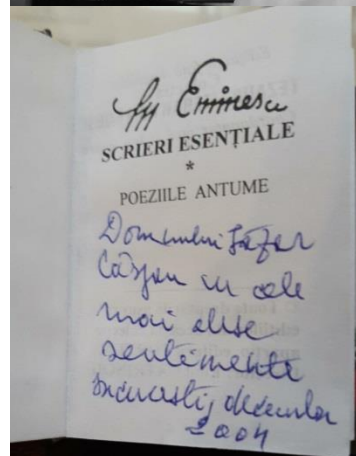 M Eminescu
SCRIERI ESENȚIALE
*
POEZIILE ANTUME
Domnului Lazăr
cu cele
mai alese
sentimente
București, decembrie
2004